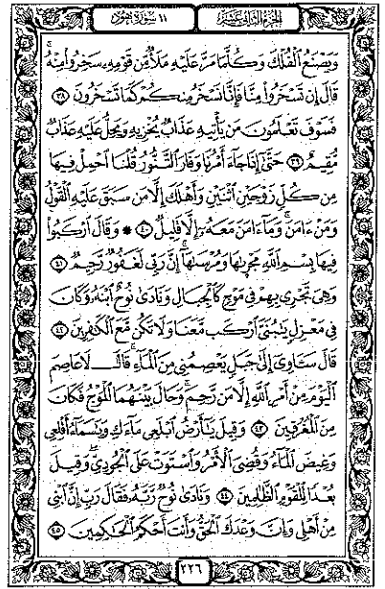 الجزء الثاني عشر
١١ سورة هود
وَيَصْنَعُ ٱلْفُلْكَ وَكُلَّمَا مَرَّ عَلَيْهِ مَلَأٌ مِّن قَوْمِهِۦ سَخِرُوا۟ مِنْهُ ۚ
قَالَ إِن تَسْخَرُوا۟ مِنَّا فَإِنَّا نَسْخَرُ مِنكُمْ كَمَا تَسْخَرُونَ ٣٨
فَسَوْفَ تَعْلَمُونَ مَن يَأْتِيهِ عَذَابٌ يُخْزِيهِ وَيَحِلُّ عَلَيْهِ عَذَابٌ
مُّقِيمٌ ٣٩ حَتَّىٰٓ إِذَا جَآءَ أَمْرُنَا وَفَارَ ٱلتَّنُّورُ قُلْنَا ٱحْمِلْ فِيهَا
مِن كُلٍّ زَوْجَيْنِ ٱثْنَيْنِ وَأَهْلَكَ إِلَّا مَن سَبَقَ عَلَيْهِ ٱلْقَوْلُ
وَمَنْ ءَامَنَ ۚ وَمَآ ءَامَنَ مَعَهُۥٓ إِلَّا قَلِيلٌ ٤٠ ۞ وَقَالَ ٱرْكَبُوا۟
فِيهَا بِسْمِ ٱللَّهِ مَجْر۪ىٰهَا وَمُرْسَىٰهَآ ۚ إِنَّ رَبِّى لَغَفُورٌ رَّحِيمٌ ٤١
وَهِىَ تَجْرِى بِهِمْ فِى مَوْجٍ كَٱلْجِبَالِ وَنَادَىٰ نُوحٌ ٱبْنَهُۥ وَكَانَ
فِى مَعْزِلٍ يَـٰبُنَىَّ ٱرْكَب مَّعَنَا وَلَا تَكُن مَّعَ ٱلْكَـٰفِرِينَ ٤٢
قَالَ سَـَٔاوِىٓ إِلَىٰ جَبَلٍ يَعْصِمُنِى مِنَ ٱلْمَآءِ ۚ قَالَ لَا عَاصِمَ
ٱلْيَوْمَ مِنْ أَمْرِ ٱللَّهِ إِلَّا مَن رَّحِمَ ۚ وَحَالَ بَيْنَهُمَا ٱلْمَوْجُ فَكَانَ
مِنَ ٱلْمُغْرَقِينَ ٤٣ وَقِيلَ يَـٰٓأَرْضُ ٱبْلَعِى مَآءَكِ وَيَـٰسَمَآءُ أَقْلِعِى
وَغِيضَ ٱلْمَآءُ وَقُضِىَ ٱلْأَمْرُ وَٱسْتَوَتْ عَلَى ٱلْجُودِىِّ ۖ وَقِيلَ
بُعْدًا لِّلْقَوْمِ ٱلظَّـٰلِمِينَ ٤٤ وَنَادَىٰ نُوحٌ رَّبَّهُۥ فَقَالَ رَبِّ إِنَّ ٱبْنِى
مِنْ أَهْلِى وَإِنَّ وَعْدَكَ ٱلْحَقُّ وَأَنتَ أَحْكَمُ ٱلْحَـٰكِمِينَ ٤٥
٢٢٦